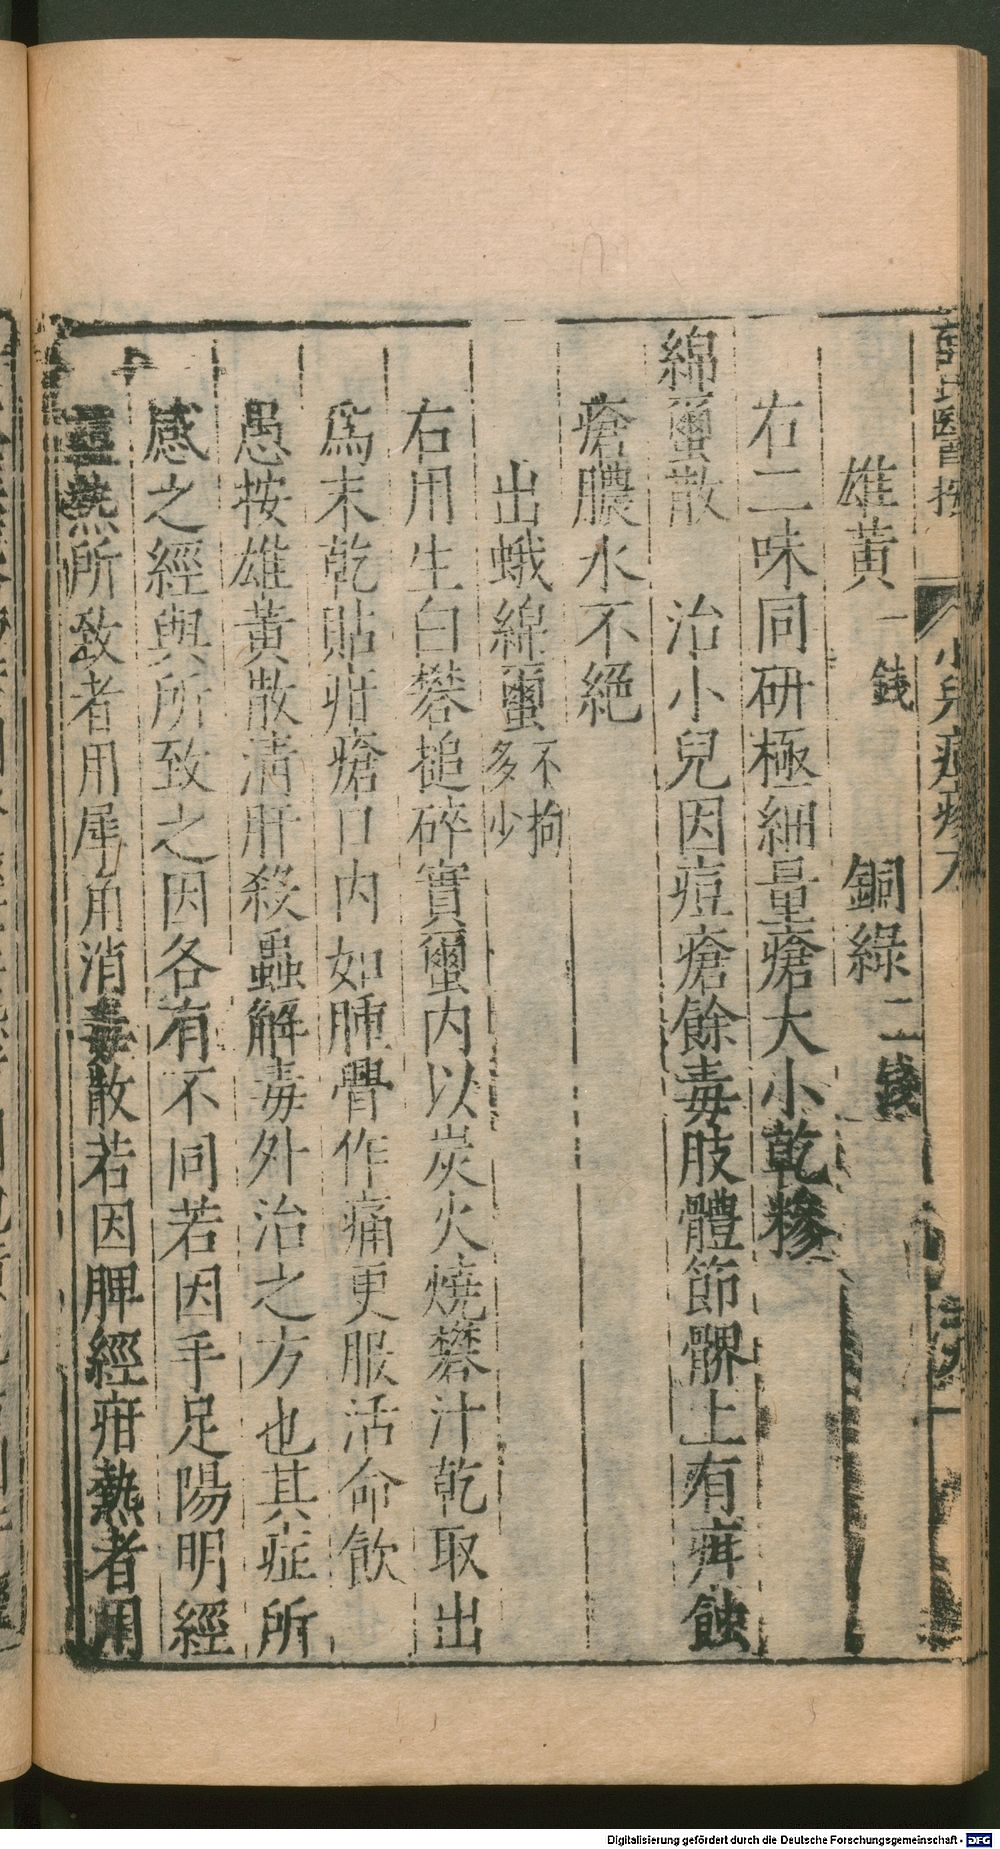 薛氏醫按 小兒痘疹方
雄黃一錢 銅綠二錢
右二味同研極細量瘡大小乾糝
綿蠒散 治小兒因痘瘡餘毒肢體節髎上有疳蝕
瘡膿水不絕
出蛾綿蠒不拘多少
右用生白礬搥碎實蠒內以炭火燒礬汁乾取出
爲末乾貼疳瘡口內如腫骨作痛更服活命飮
愚按雄黃散淸肝殺蟲解毒外治之方也其症所
感之經與所致之因各有不同若因手足陽明經
熱所致者用犀角消毒散若因脾經疳熱者用
Digitalisierung gefördert durch die Deutsche Forschungsgemeinschaft - DFG